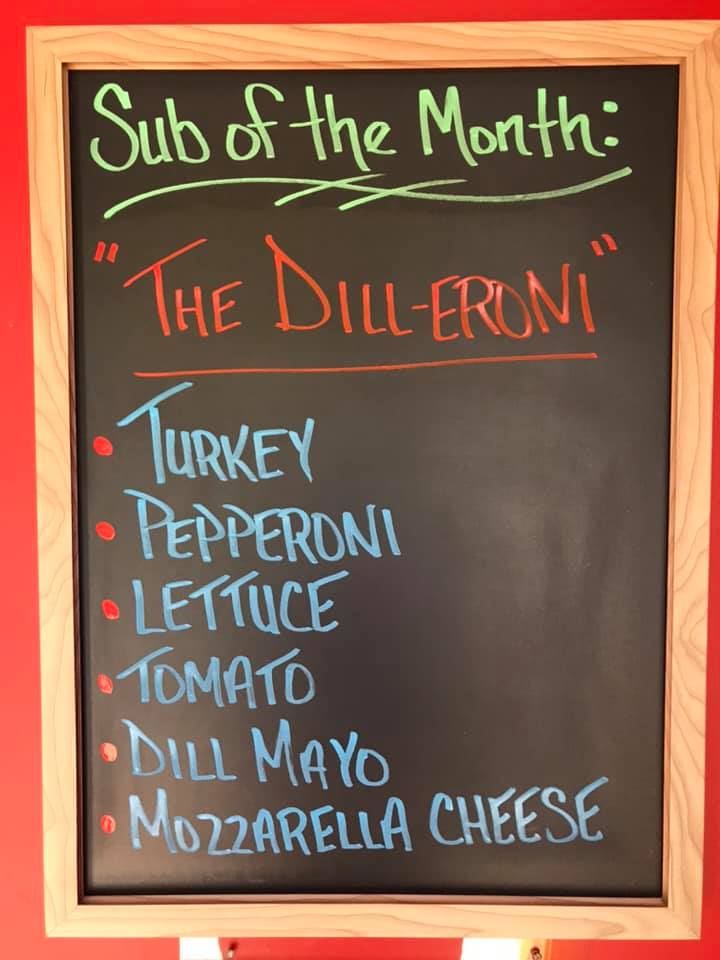 Sub of the Month:
"THE DILL-ERONI"
• TURKEY
• PEPPERONI
• LETTUCE
• TOMATO
• DILL MAYO
• MOZZARELLA CHEESE